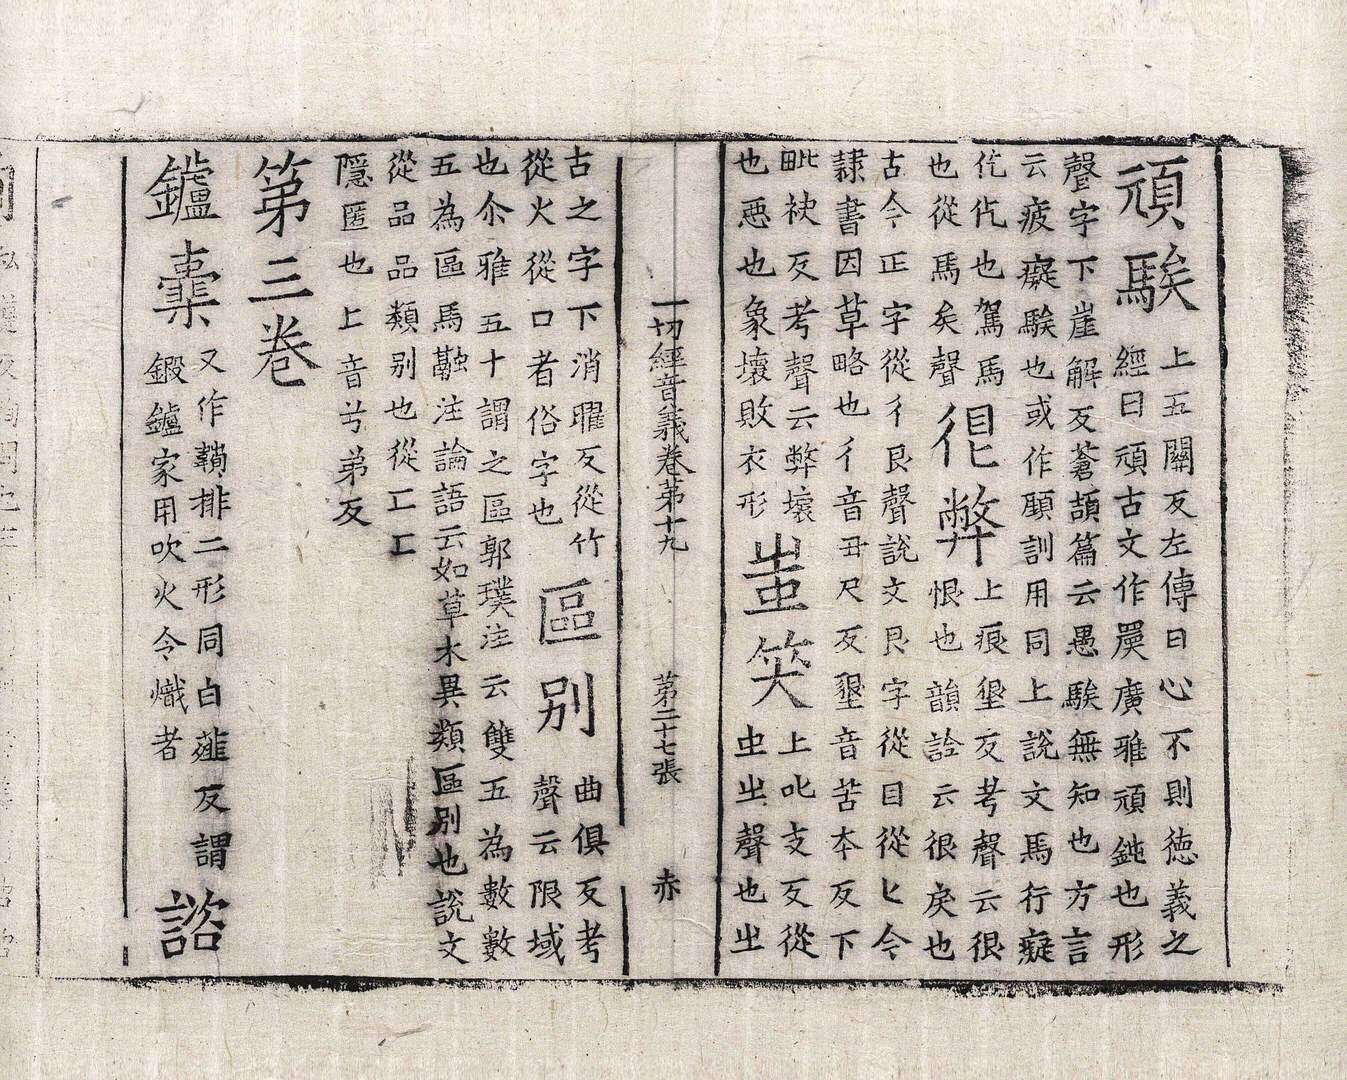 頑騃上五關反左傳曰心不則徳義之
經曰頑古文作㒹廣雅頑鈍也形
聲字下崖解反蒼頡篇云愚騃無知也方言
云疲癡騃也或作顧訓用同上說文馬行癡
仡仡也駕馬
也從馬矣聲
佷弊上痕墾反考聲云很
恨也韻詮云很戾也
古今正字從彳艮聲說文艮字從目從匕今
隷書因草略也彳音丑尺反墾音苦本反下
毗袂反考聲云弊壞
也惡也象壞敗衣形
蚩笑上叱支反從
虫㞢聲也㞢
一切經音義卷第十九 第二十七張 赤
古之字下消曜反從竹
從火從口者俗字也
區別曲俱反考
聲云限域
也尒雅五十謂之區郭璞注云雙五為數數
五為區馬融注論語云如草木異類區別也說文
從品品類別也從匸匸
隱匿也上音兮弟反
第三卷
鑪橐又作鞴排二形同白薤反謂
鍛鑪家用吹火令熾者
諮